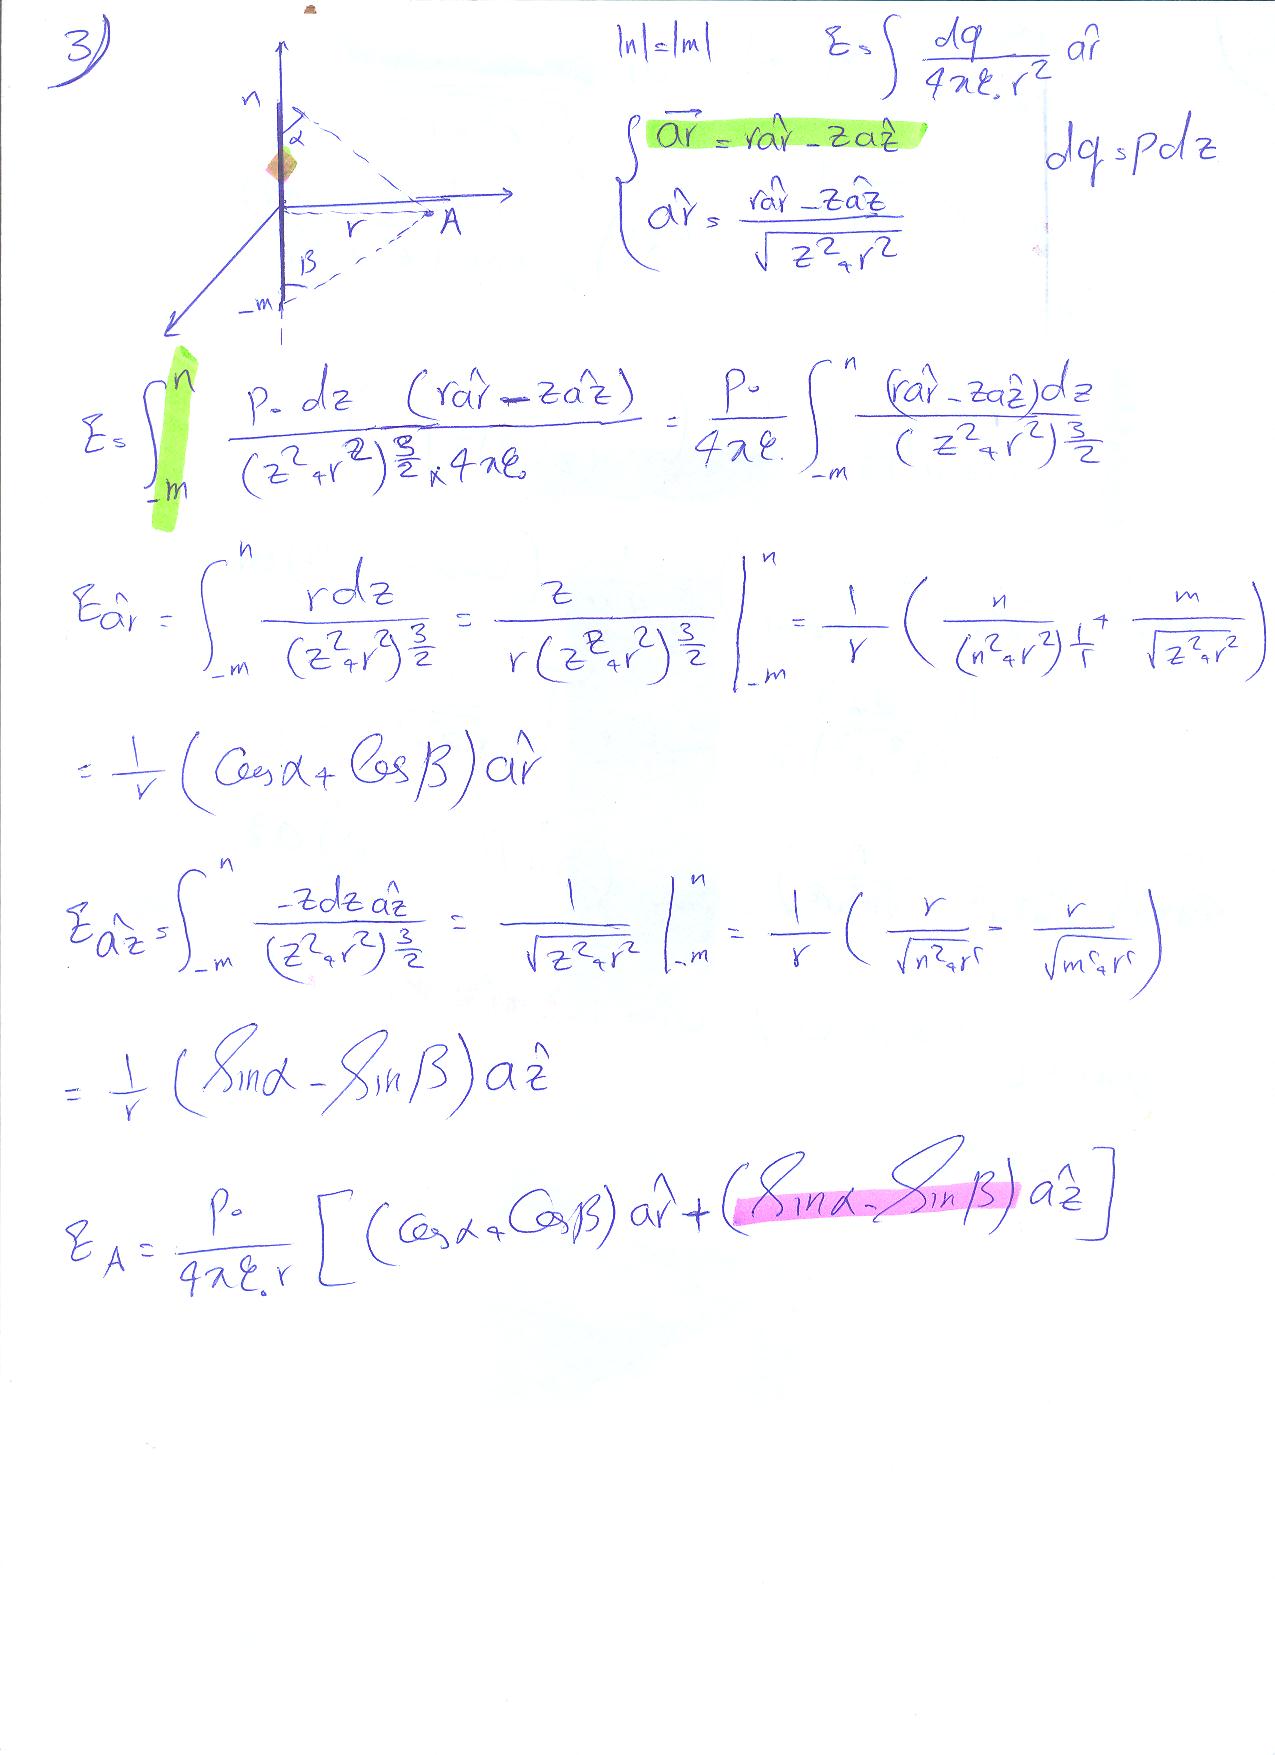 3)
|n|=|m|    E=∫ dq / 4πε₀r² ar̂
n
α
ar⃗ = rar̂ - zaẑ    dq=ρdz
ar̂ = (rar̂ - zaẑ) / √(z²+r²)
r A
β
-m
E=∫_{-m}^{n} ρ₀ dz (rar̂ - zaẑ) / (z²+r²)^{3/2} × 4πε₀ = ρ₀ / 4πε₀ ∫_{-m}^{n} (rar̂ - zaẑ)dz / (z²+r²)^{3/2}
E_{ar̂} = ∫_{-m}^{n} rdz / (z²+r²)^{3/2} = z / r(z²+r²)^{3/2} |_{-m}^{n} = 1/r ( n / (n²+r²)^{1/r} + m / √(z²+r²) )
= 1/r (Cosα + Cosβ) ar̂
E_{aẑ} = ∫_{-m}^{n} -zdz aẑ / (z²+r²)^{3/2} = 1 / √(z²+r²) |_{-m}^{n} = 1/r ( r / √(n²+r²) - r / √(m²+r²) )
= 1/r (Sinα - Sinβ) aẑ
E_A = ρ₀ / 4πε₀r [ (Cosα + Cosβ) ar̂ + (Sinα - Sinβ) aẑ ]